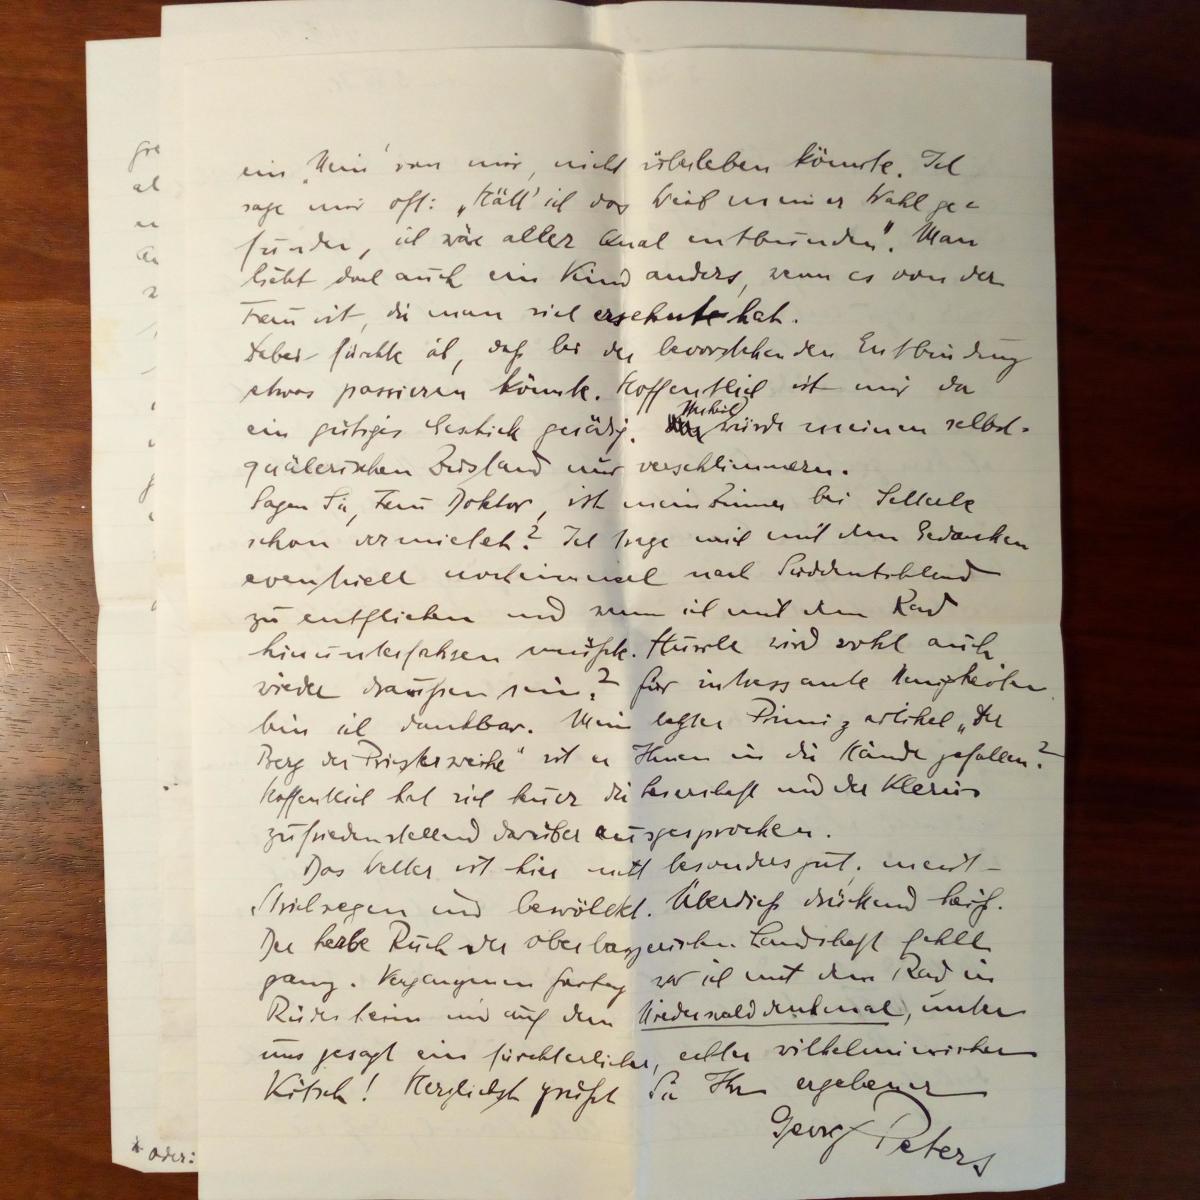 ein „Nein“ von mir, nicht überleben könnte. Ich
sage mir oft: „Hätt' ich das Weib meiner Wahl ge-
funden, ich wäre aller Qual entbunden“. Man
liebt doch auch ein Kind anders, wenn es von der
Frau ist, die man sich ersehnte hat.
Dabei fürchte ich, daß bei der bevorstehenden Entbindung
etwas passieren könnte. Hoffentlich ist mir da
ein gütiges Geschick gnädig. Unheil würde meinen selbst-
quälerischen Zustand nur verschlimmern.
Sagen Sie, Frau Doktor, ist mein Zimmer bei
schon vermietet? Ich trage mich mit dem Gedanken
eventuell nocheinmal nach Süddeutschland
zu entfliehen und wenn ich mit dem Rad
hinunterfahren müßte. Hurrle wird wohl auch
wieder draußen sein? Für interessante Neuigkeiten
bin ich dankbar. Mein letzter Primizartikel „Der
Berg der Priesterweihe“ ist er Ihnen in die Hände gefallen?
Hoffentlich hat sich heuer die Leserschaft und der Klerus
zufriedenstellend darüber ausgesprochen.
Das Wetter ist hier nicht besonders gut, meist
Strichregen und bewölkt. Überdieß drückend heiß.
Der herbe Ruch der oberbayerischen Landschaft fehlt
ganz. Vergangenen war ich mit dem Rad in
Rüdesheim und auf dem Niederwalddenkmal, unter
uns gesagt ein fürchterlicher, echter wilhelminischer
Kitsch! Herzlichst grüßt Sie Ihr ergebener
Georg Peters
* oder: